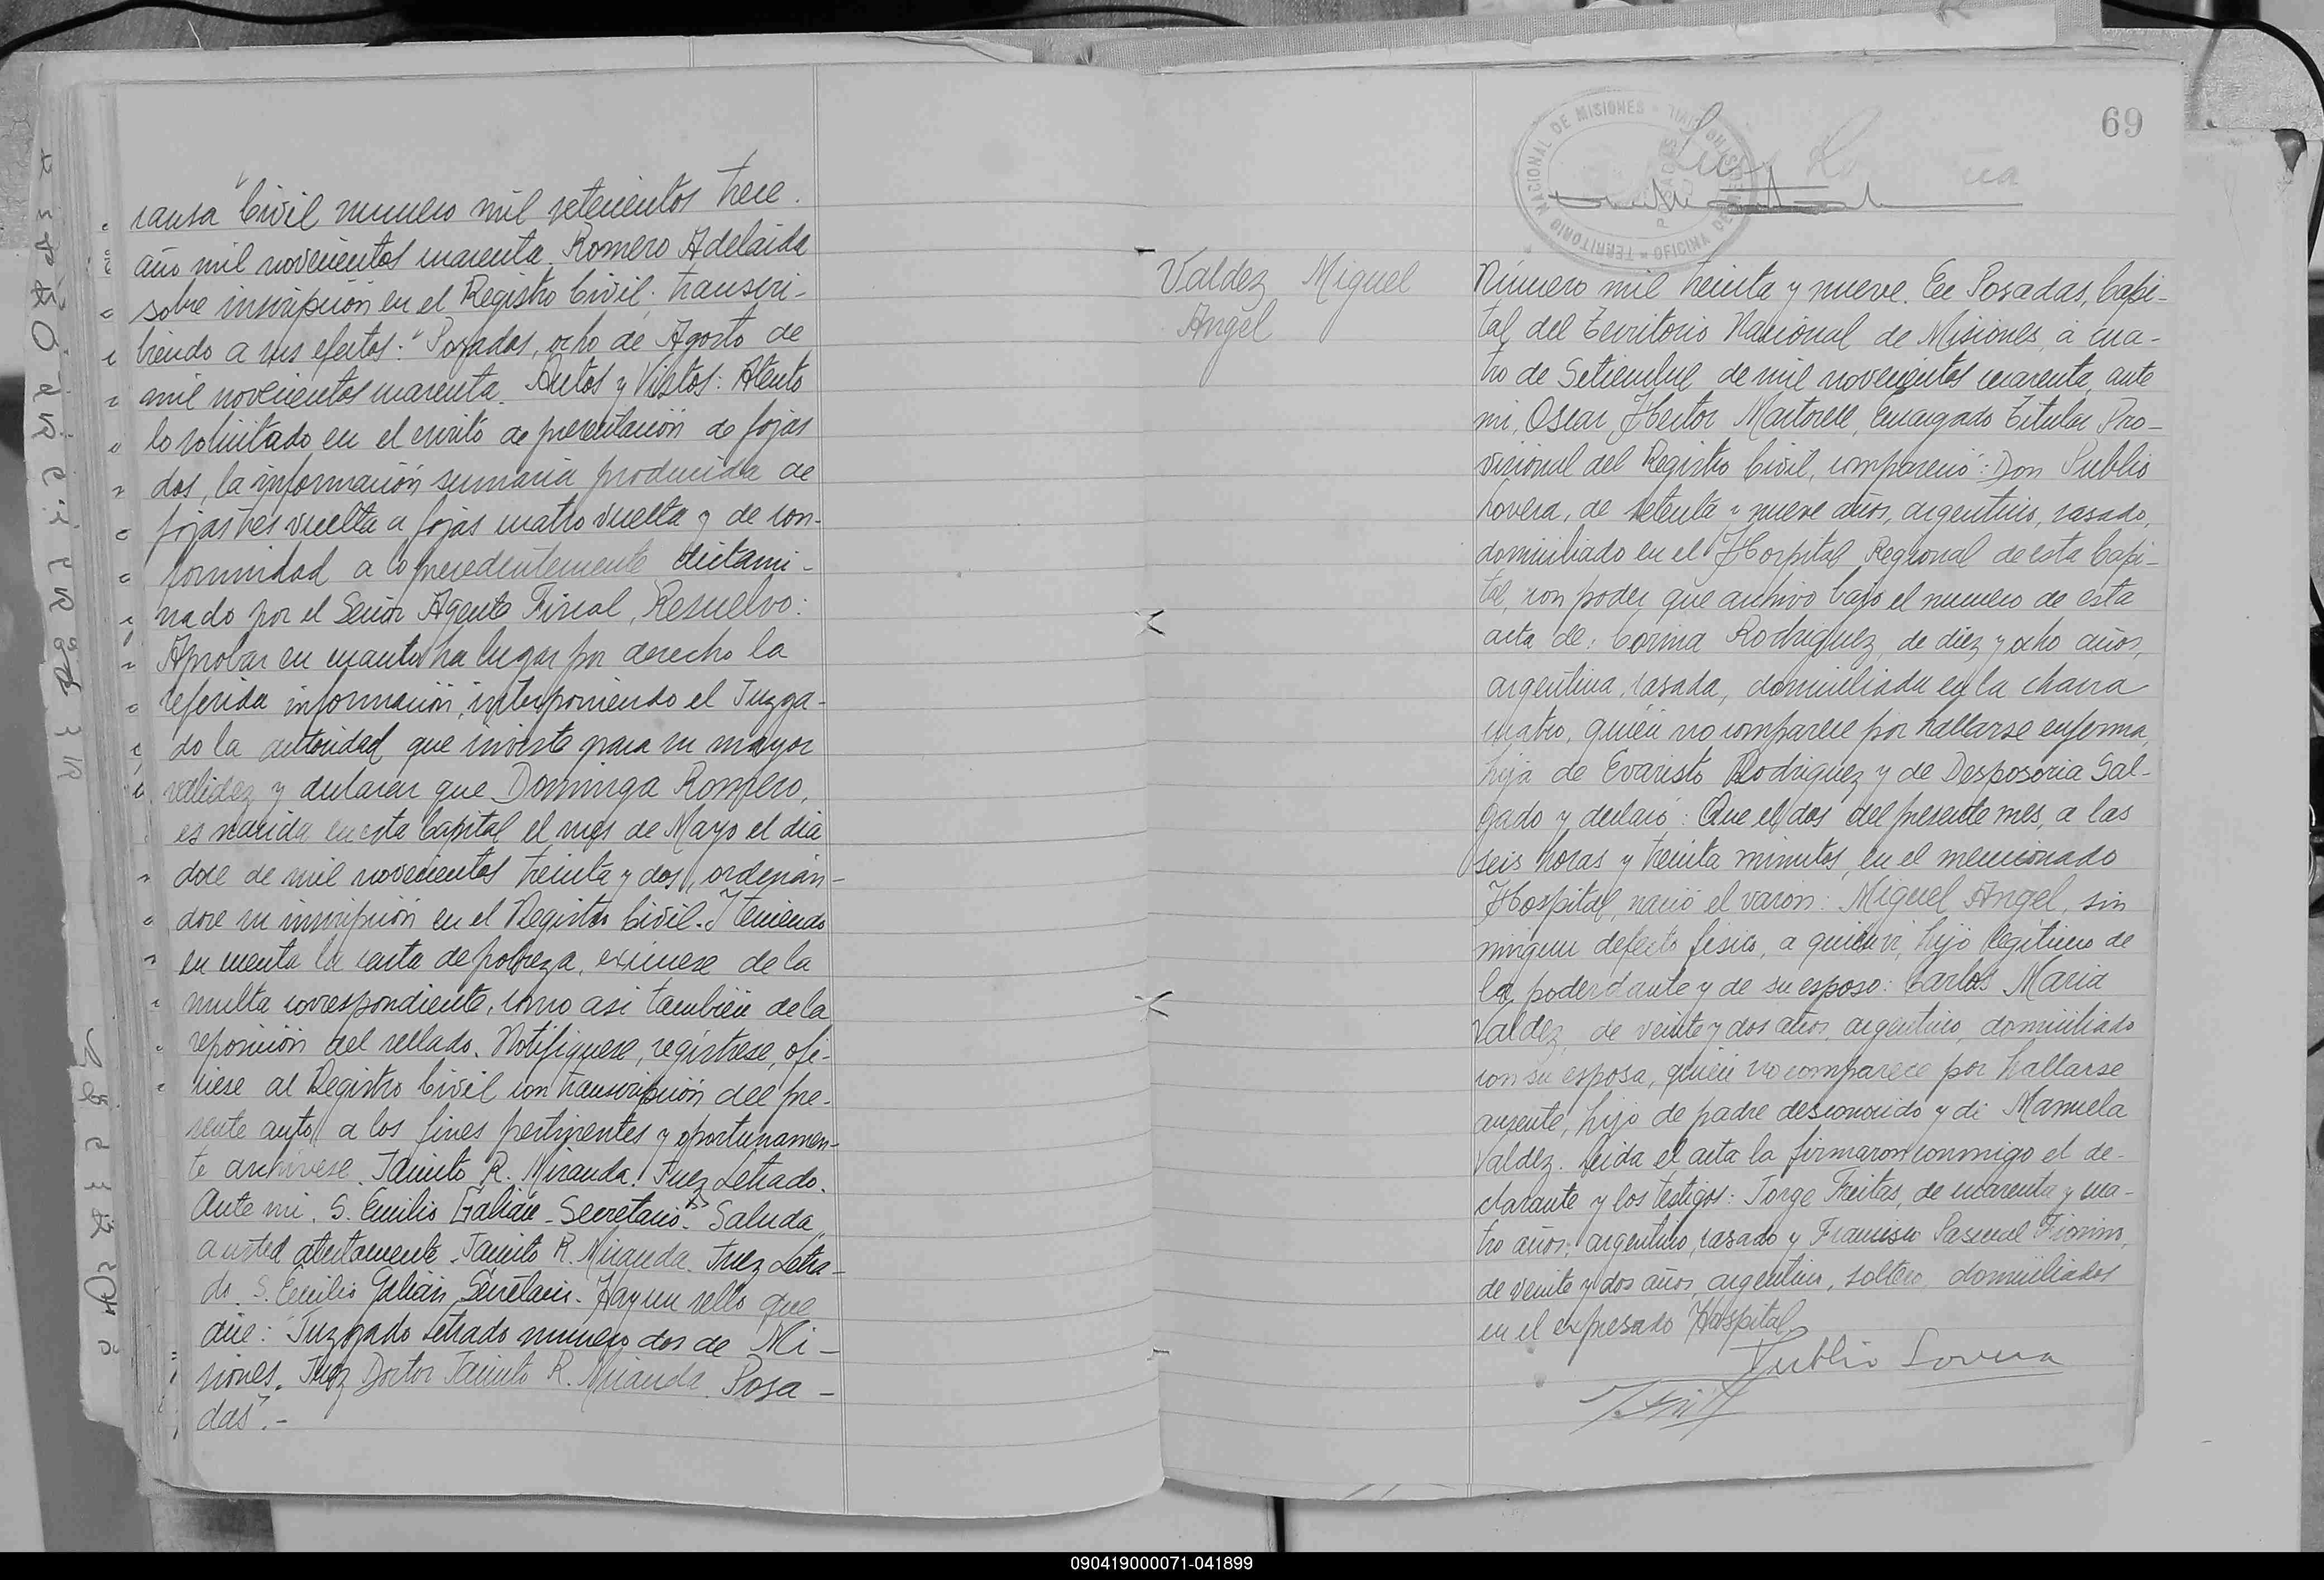 causa Civil numero mil setecientos trece.
año mil novecientos cuarenta. Romero Adelaida
sobre inscripción en el Registro Civil; transcri-
biendo a sus efectos: "Posadas, ocho de Agosto de
mil novecientos cuarenta. Autos y Vistos: Atento
lo solicitado en el escrito de presentación de fojas
dos, la información sumaria producida de
fojas tres vuelta a fojas cuatro vuelta y de con-
formidad a lo precedentemente dictami-
nado por el Señor Agente Fiscal, Resuelvo:
Aprobar en cuanto ha lugar por derecho la
referida información, interponiendo el Juzga-
do la autoridad que inviste para su mayor
validez y declarar que Dominga Romero,
es nacida en esta Capital el mes de Mayo el dia
doce de mil novecientos treinta y dos, ordenán-
dose su inscripción en el Registro Civil. Y teniendo
en cuenta la carta de pobreza, exímese de la
multa correspondiente, como asi también de la
reposición del sellado. Notifíquese, regístrese, ofí-
ciese al Registro Civil con transcripción del pre-
sente auto a los fines pertinentes y oportunamen-
te archívese. Jacinto R. Miranda. Juez Letrado.
Ante mi. S. Emilio Galián - Secretario". Saluda
a usted atentamente. Jacinto R. Miranda. Juez Letra-
do. S. Emilio Galián Secretario. Hay un sello que
dice: "Juzgado Letrado numero dos de Mi-
siones. Juez Doctor Jacinto R. Miranda. Posa-
das".-
69
TERRITORIO NACIONAL DE MISIONES
OFICINA
POSADAS
Valdez Miguel
Angel
Número mil treinta y nueve. En Posadas, Capi-
tal del Territorio Nacional de Misiones, a cua-
tro de Setiembre de mil novecientos cuarenta, ante
mi, Oscar Hector Martorell, Encargado Titular Pro-
visional del Registro Civil, compareció: Don Publio
Lovera, de setenta y nueve años, argentino, casado,
domiciliado en el Hospital Regional de esta Capi-
tal, con poder que archivo bajo el numero de esta
acta de: Corina Rodriguez, de diez y ocho años,
argentina, casada, domiciliada en la chacra
cuatro, quien no comparece por hallarse enferma,
hija de Evaristo Rodriguez y de Desposoria Sal-
gado y declaró: Que el dos del presente mes, a las
seis horas y treinta minutos, en el mencionado
Hospital, nació el varon: Miguel Angel, sin
ningun defecto fisico, a quien ví, hijo legítimo de
la poderdante y de su esposo: Carlos Maria
Valdez, de veinte y dos años, argentino, domiciliado
con su esposa, quien no comparece por hallarse
ausente, hijo de padre desconocido y de Manuela
Valdez. Leida el acta la firmaron conmigo el de-
clarante y los testigos: Jorge Freitas, de cuarenta y cua-
tro años, argentino, casado y Francisco Pascual Fiorino,
de veinte y dos años, argentino, soltero, domiciliados
en el expresado Hospital.
Publio Lovera
090419000071-041899